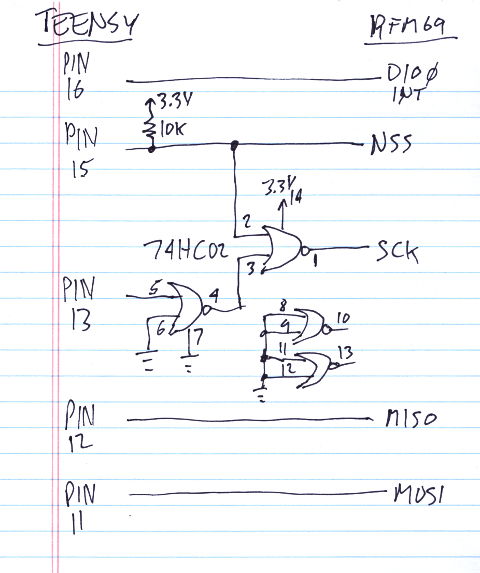 TEENSY RFM69
PIN 16 DIO0 INT
3.3V
10K
PIN 15 NSS
3.3V
14
2
74HC02
3
1
SCK
PIN 13
5
4
6
7
8
10
9
11
13
12
PIN 12 MISO
PIN 11 MOSI